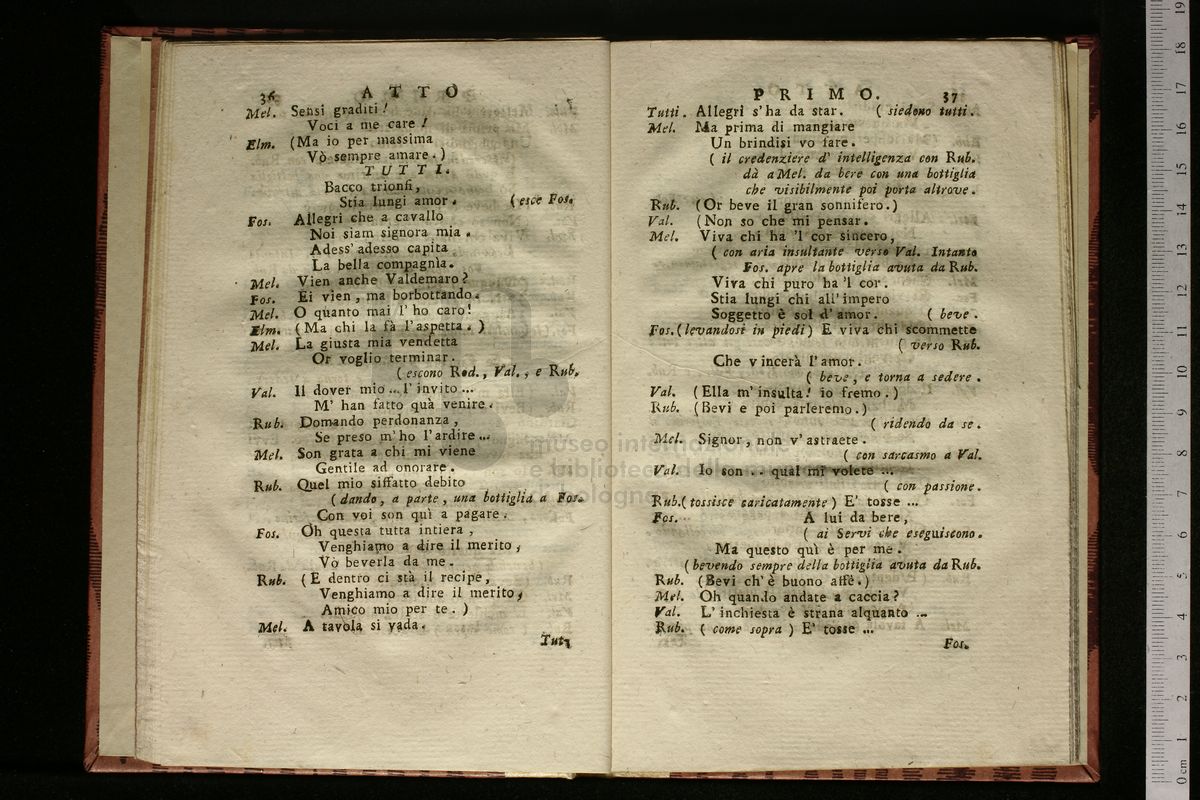 36 ATTO
Mel. Sensi graditi!
Voci a me care!
Elm. (Ma io per massima
Vò sempre amare.)
TUTTI.
Bacco trionfi,
Stia lungi amor. (esce Fos.
Fos. Allegri che a cavallo
Noi siam signora mia.
Adess' adesso capita
La bella compagnìa.
Mel. Vien anche Valdemaro?
Fos. Ei vien, ma borbottando.
Mel. O quanto mai l' ho caro!
Elm. (Ma chi la fà l'aspetta.)
Mel. La giusta mia vendetta
Or voglio terminar.
(escono Rod., Val., e Rub.
Val. Il dover mio ... l' invito ...
M' han fatto quà venire.
Rub. Domando perdonanza,
Se preso m' ho l'ardire ...
Mel. Son grata a chi mi viene
Gentile ad onorare.
Rub. Quel mio siffatto debito
(dando, a parte, una bottiglia a Fos.
Con voi son quì a pagare.
Fos. Oh questa tutta intiera,
Venghiamo a dire il merito,
Vò beverla da me.
Rub. (E dentro ci stà il recipe,
Venghiamo a dire il merito,
Amico mio per te.)
Mel. A tavola si vada.
Tut-
PRIMO. 37
Tutti. Allegri s'ha da star. (siedono tutti.
Mel. Ma prima di mangiare
Un brindisi vo fare.
(il credenziere d' intelligenza con Rub.
dà a Mel. da bere con una bottiglia
che visibilmente poi porta altrove.
Rub. (Or beve il gran sonnifero.)
Val. (Non so che mi pensar.
Mel. Viva chi ha 'l cor sincero,
(con aria insultante verso Val. Intanto
Fos. apre la bottiglia avuta da Rub.
Viva chi puro ha 'l cor.
Stia lungi chi all' impero
Soggetto è sol d' amor. (beve.
Fos. (levandosi in piedi) E viva chi scommette
(verso Rub.
Che vincerà l'amor.
(beve, e torna a sedere.
Val. (Ella m' insulta! io fremo.)
Rub. (Bevi e poi parleremo.)
(ridendo da se.
Mel. Signor, non v' astraete.
(con sarcasmo a Val.
Val. Io son .. qual mi volete ...
(con passione.
Rub. (tossisce caricatamente) E' tosse ...
Fos. A lui da bere,
(ai Servi che eseguiscono.
Ma questo quì è per me.
(bevendo sempre della bottiglia avuta da Rub.
Rub. (Bevi ch' è buono affè.)
Mel. Oh quando andate a caccia?
Val. L' inchiesta è strana alquanto ...
Rub. (come sopra) E' tosse ...
Fos.
museo internazionale
e biblioteca della
bologna
0 cm 1 2 3 4 5 6 7 8 9 10 11 12 13 14 15 16 17 18 19